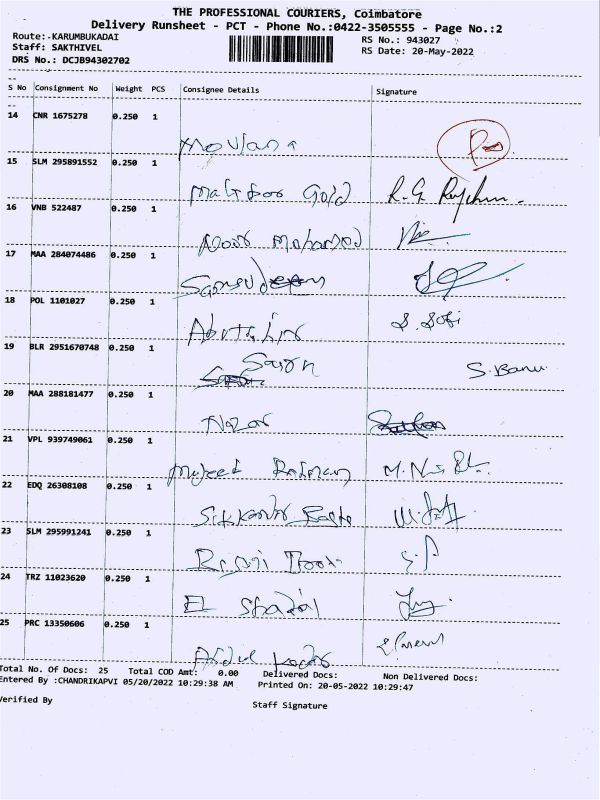 THE PROFESSIONAL COURIERS, Coimbatore
Delivery Runsheet - PCT - Phone No.:0422-3505555 - Page No.:2
Route:-KARUMBUKADAI
RS No.: 943027
Staff: SAKTHIVEL
RS Date: 20-May-2022
DRS No.: DCJB94302702
S No Consignment No Weight PCS Consignee Details Signature
14 CNR 1675278 0.250 1
Moulana
15 SLM 295891552 0.250 1
Gold R.G.
16 VNB 522487 0.250 1
Noor Mohamed
17 MAA 284074486 0.250 1
18 POL 1101027 0.250 1
S. Sofi
19 BLR 2951670748 0.250 1
S. Banu
20 MAA 288181477 0.250 1
Nazar
21 VPL 939749061 0.250 1
Majeed Rahman
22 EDQ 26308108 0.250 1
23 SLM 295991241 0.250 1
24 TRZ 11023620 0.250 1
25 PRC 13350606 0.250 1
Abdul Kadar
Total No. Of Docs: 25 Total COD Amt: 0.00 Delivered Docs: Non Delivered Docs:
Entered By :CHANDRIKAPVI 05/20/2022 10:29:38 AM Printed On: 20-05-2022 10:29:47
Verified By
Staff Signature